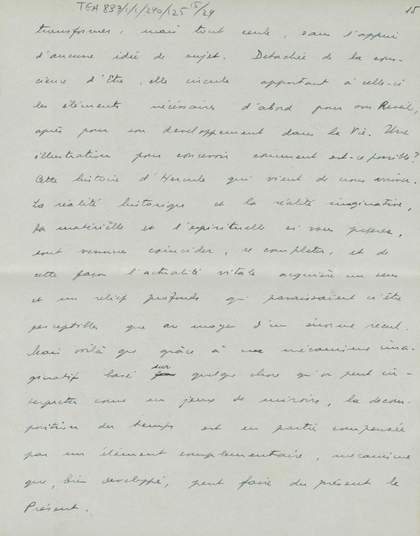 TEA 883/1/1/240/25 15/29
15
transformer, mais tout seule, sans l'appui
d'aucune idée de sujet. Detachée de la cons-
cience d'Etre, elle circule apportant à celle-ci
les éléments nécessaires d'abord pour son Reveil,
après pour son developpement dans la Vie. Une
illustration pour concevoir comment est-ce possible?
Cette histoire d'Hercule qui vient de nous arriver.
La réalité historique et la réalité imaginative,
la matérielle et l'espirituelle si vous preferez,
sont venues coincider, se completer, et de
cette façon l'actualité vitale acquière un sens
et un relief profonds qui paraissaient n'être
perceptibles que au moyen d'un énorme recul.
Mais voilà que grâce à un mécanisme ima-
ginatif basé sur quelque chose qu'on peut in-
terpreter comme un jeux de miroirs, la decom-
position du temps est en partie compensée
par un élément complementaire, mécanisme
que, bien developpé, peut faire du présent le
Présent.